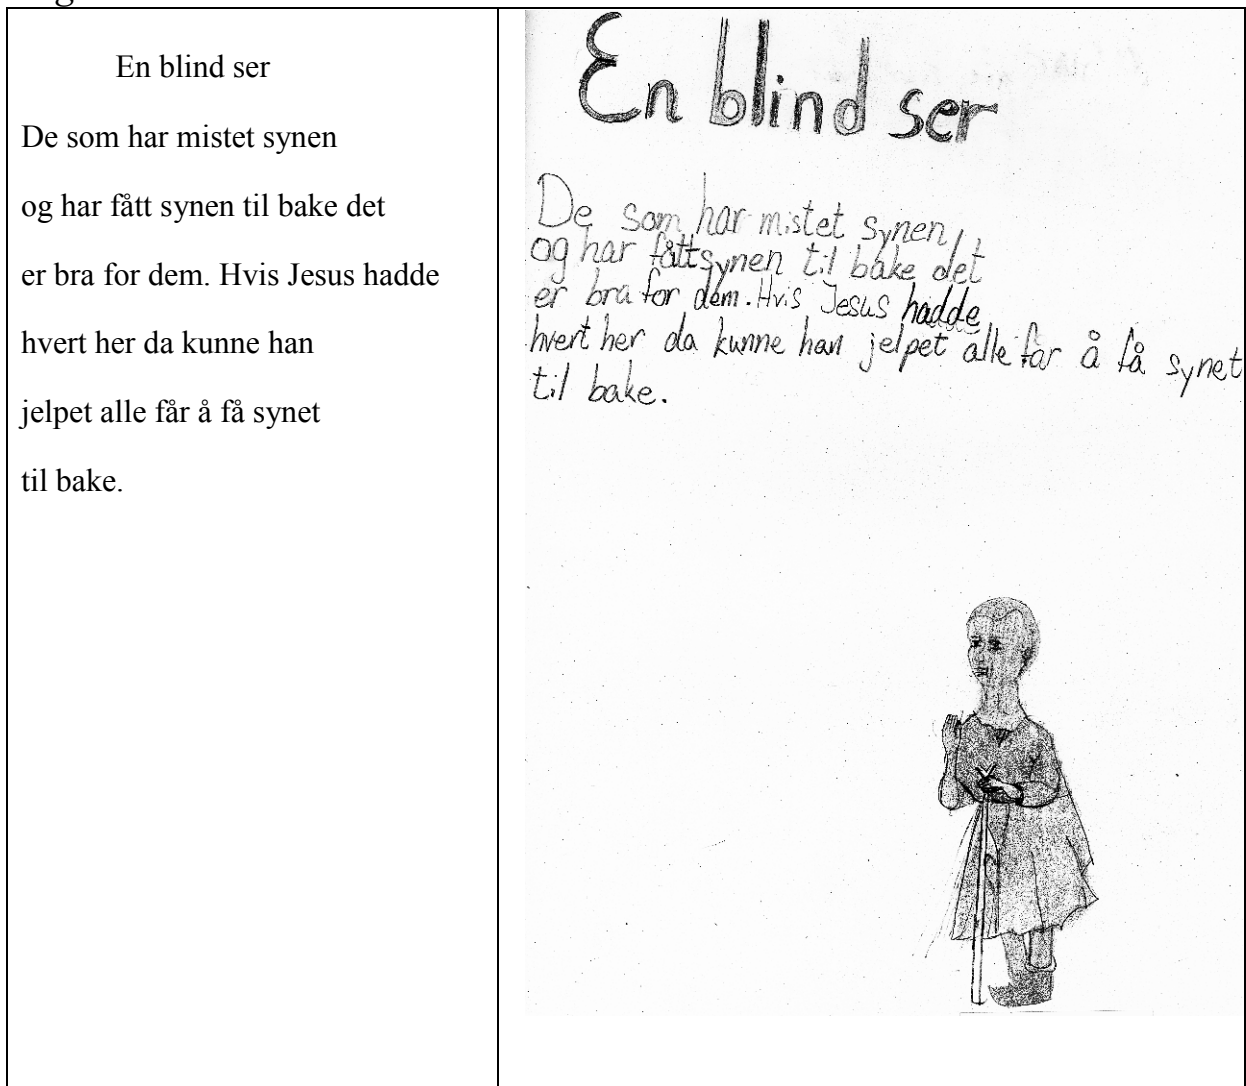 En blind ser
De som har mistet synen
og har fått synen til bake det
er bra for dem. Hvis Jesus hadde
hvert her da kunne han
jelpet alle får å få synet
til bake.
En blind ser
De som har mistet synen,
og har fått synen til bake det
er bra for dem. Hvis Jesus hadde
hvert her da kunne han jelpet alle får å få synet
til bake.